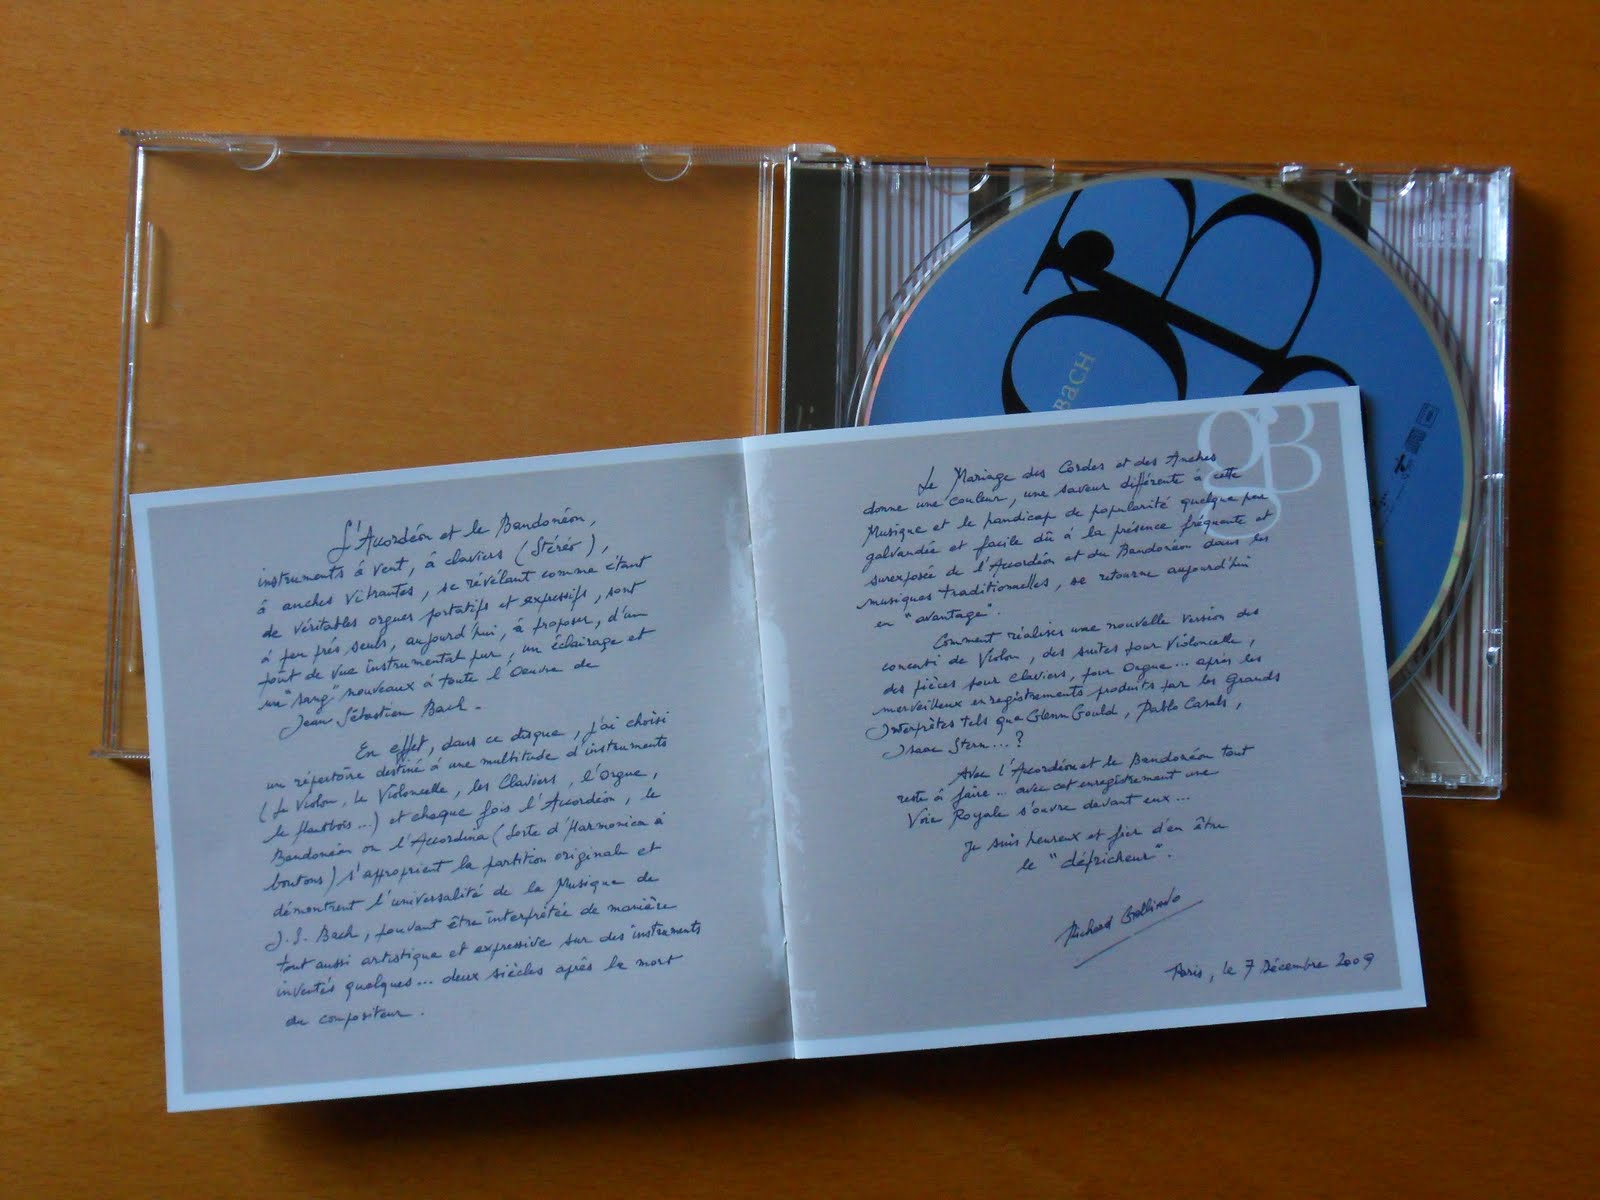 L'Accordéon et le Bandonéon,
instruments à vent, à claviers (Stéréo),
à anches vibrantes, se révélant comme étant
de véritables orgues portatifs et expressifs, sont
à peu près seuls, aujourd'hui, à proposer, d'un
point de vue instrumental pur, un éclairage et
un "sang" nouveaux à toute l'Oeuvre de
Jean Sébastien Bach.
En effet, dans ce disque, j'ai choisi
un répertoire destiné à une multitude d'instruments
(le Violon, le Violoncelle, les Claviers, l'Orgue,
le Hautbois...) et chaque fois l'Accordéon, le
Bandonéon ou l'Accordina (sorte d'Harmonica à
boutons) s'approprient la partition originale et
démontrent l'universalité de la Musique de
J.S. Bach, pouvant être interprétée de manière
tout aussi artistique et expressive sur des instruments
inventés quelques... deux siècles après la mort
du compositeur.
gB
Le Mariage des Cordes et des Anches
donne une couleur, une saveur différente à cette
Musique et le handicap de popularité quelque peu
galvaudée et facile dû à la présence fréquente et
surexposée de l'Accordéon et du Bandonéon dans les
musiques traditionnelles, se retourne aujourd'hui
en "avantage".
Comment réaliser une nouvelle version des
concerti de Violon, des suites pour Violoncelle,
des pièces pour Claviers, pour Orgue... après les
merveilleux enregistrements produits par les Grands
Interprètes tels que Glenn Gould, Pablo Casals,
Isaac Stern...?
Avec l'Accordéon et le Bandonéon tout
reste à faire... avec cet enregistrement une
Voie Royale s'ouvre devant eux...
Je suis heureux et fier d'en être
le "défricheur".
Richard Galliano
Paris, le 7 Décembre 2009
BACH